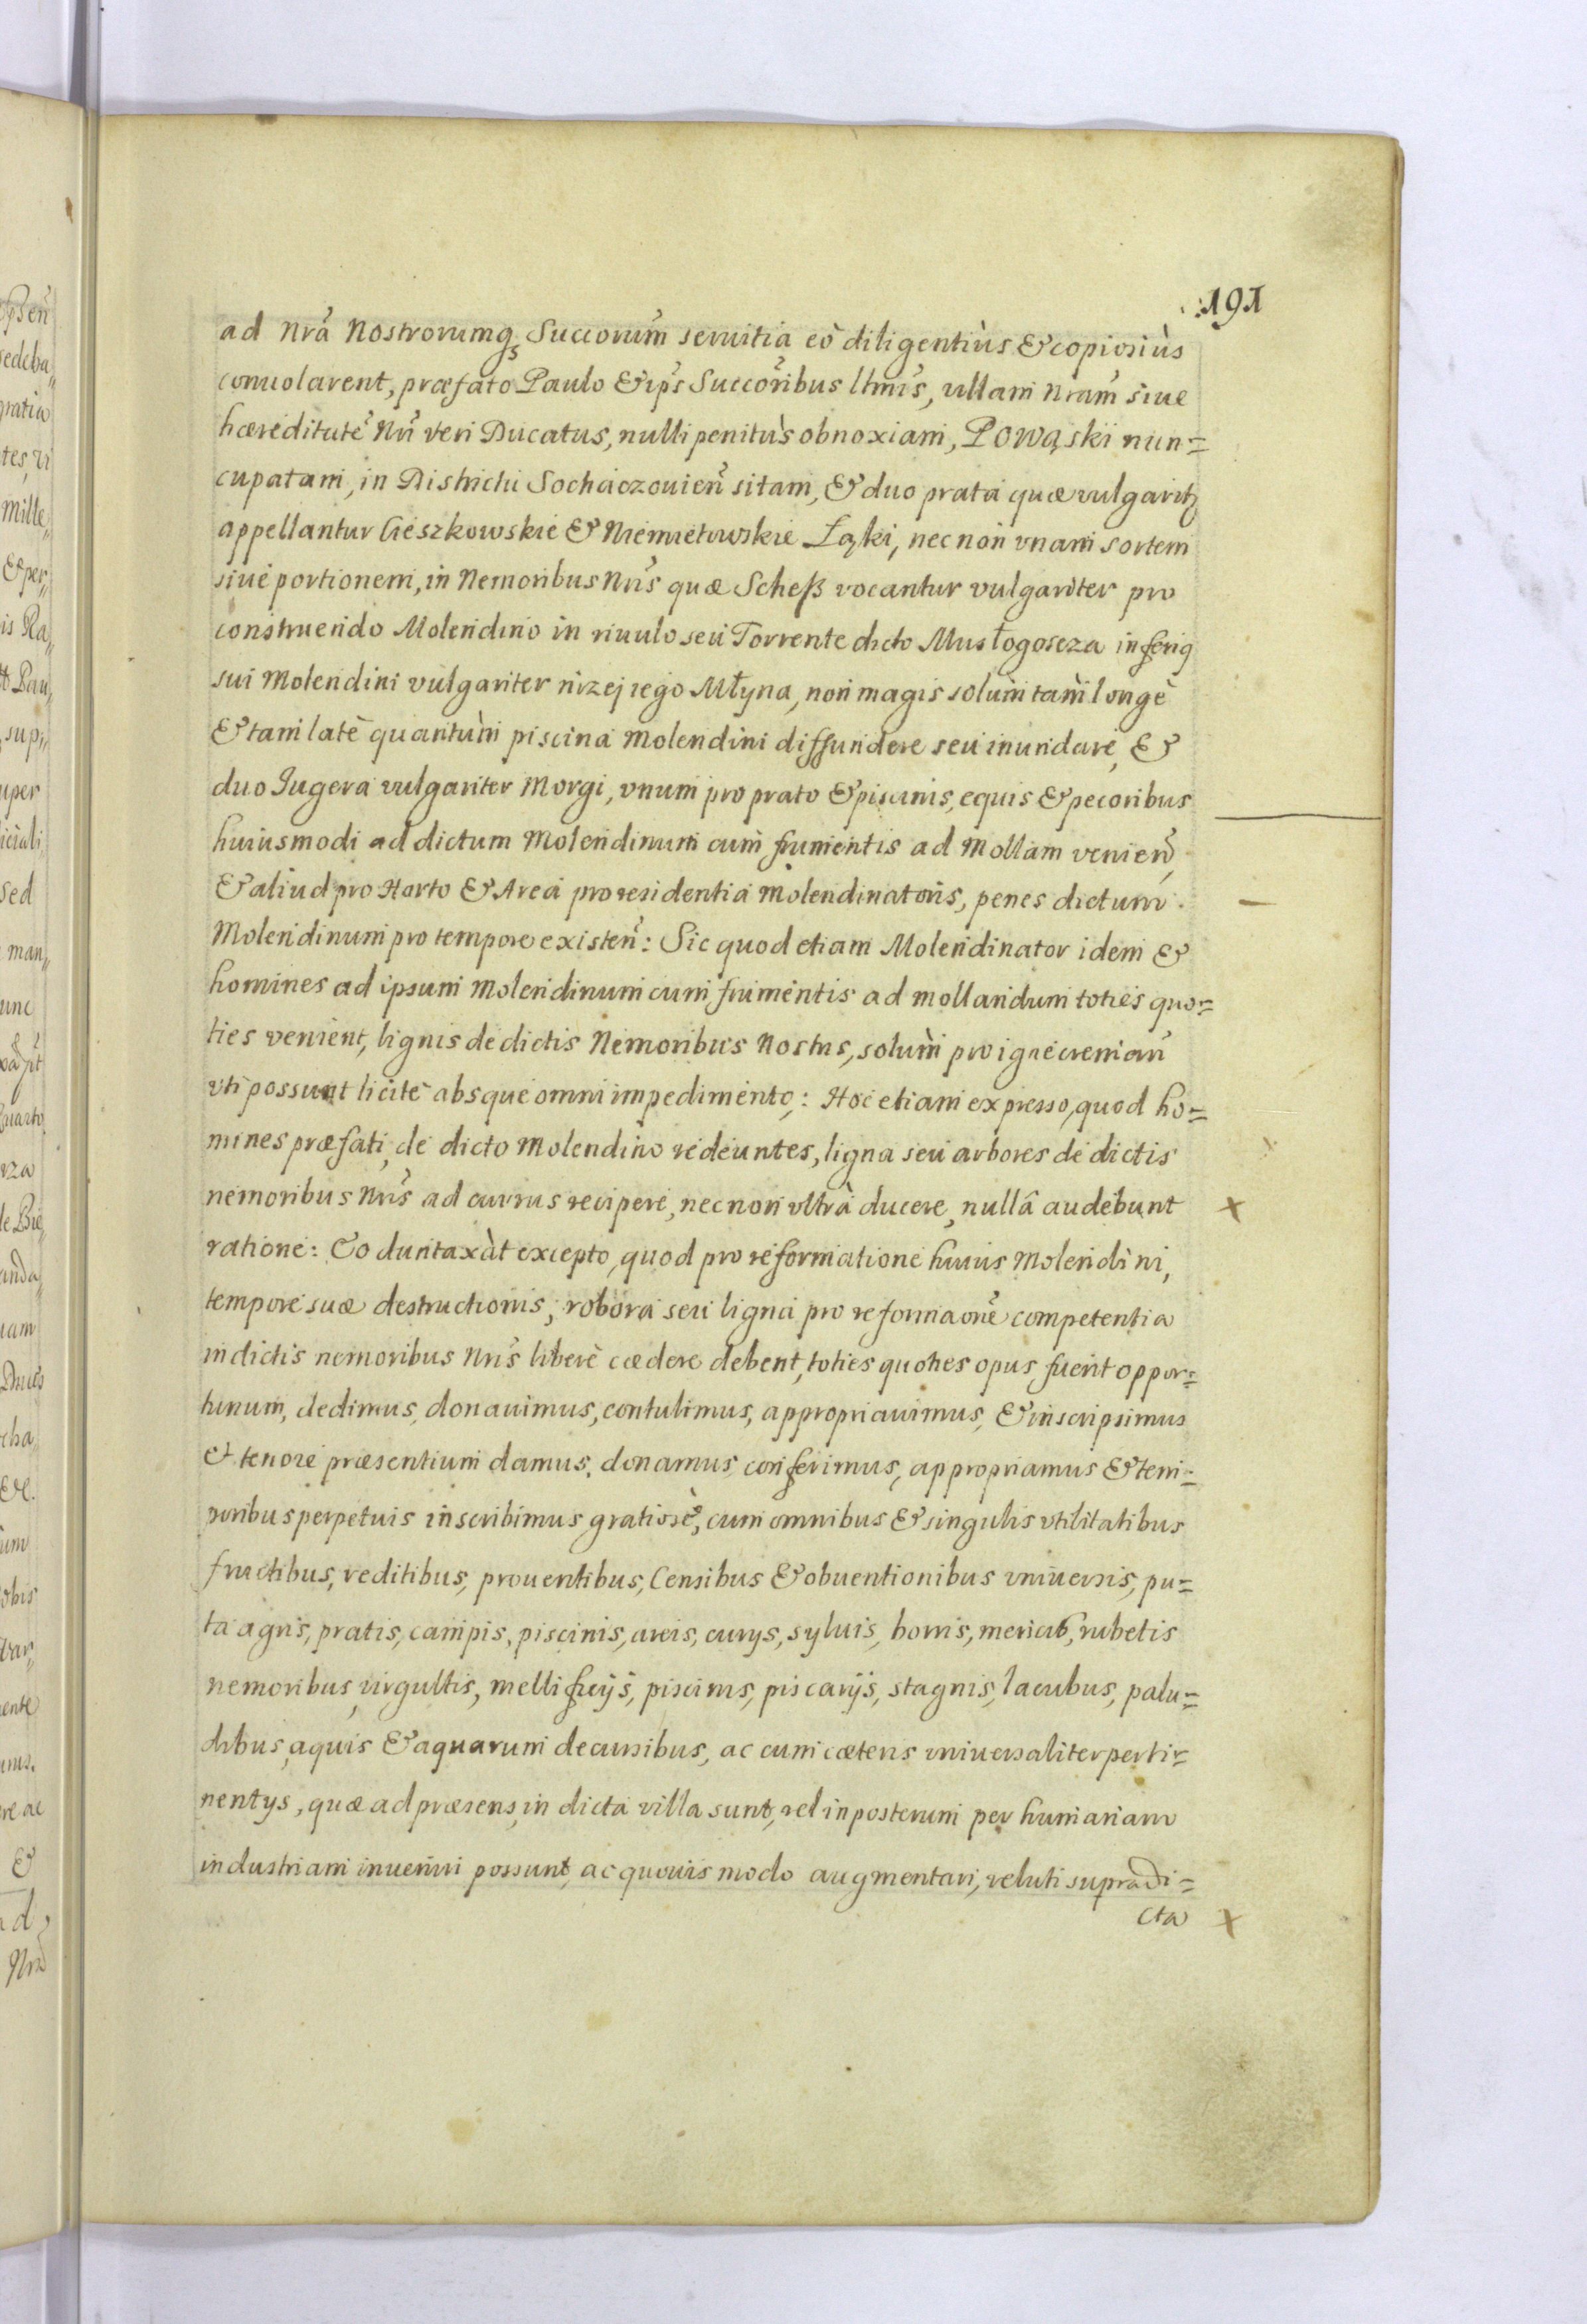 191
ad nrã Nostrorumq₃ Succorum̃ seruitia eò diligentiùs & copiosiùs
conuolarent, præfato Paulo & ip̃s Succõribus ltmis̃, villam nram̃ siue
hæreditatẽ Nrĩ veri Ducatus, nulli penitùs obnoxiam, Powąski nun=
cupatam, in Districtu Sochaczouien̄ sitam, & duo prata quæ vulgarit
appellantur Cieszkowskie & Niemietowskie Łąki, nec non vnam sortem
siue portionem, in Nemoribus Nris̃ quæ Scheß vocantur vulgariter pro
construendo Molendino in riuulo seu Torrente dicto Mustogoscza inferiꝗ
sui Molendini vulgariter nizej iego Młyna, non magis solum tam longè
& tam latè quantùm piscina Molendini diffundere seu inundare, &
duo Jugera vulgariter Morgi, vnum pro prato & piscinis, equis & pecoribus
huiusmodi ad dictum Molendinum cum frumentis ad Mollam venien̄,
& aliud pro Horto & Area pro residentia Molendinatoris, penes dictum
Molendinum pro tempore existen̄: Sic quod etiam Molendinator idem &
homines ad ipsum Molendinum cum frumentis ad mollandum toties quo=
ties venient, lignis de dictis Nemoribus Nostris, solùm pro igne creman̄
vti possunt licitè absque omni impedimento: Hoc etiam expresso, quod ho=
mines præfati, de dicto Molendino redeuntes, ligna seu arbores de dictis
nemoribus Nris̃ ad currus recipere, nec non vltrà ducere, nullâ audebunt
ratione: Eo duntaxàt excepto, quod pro reformatione huius Molendini,
tempore suæ destructionis, robora seu ligna pro reformaonẽ competentia
in dictis nemoribus Nris̃ liberè cædere debent, toties quoties opus fuerit oppor=
tunum, dedimus, donauimus, contulimus, appropriauimus, & inscripsimus
et tenore præsentium damus, donamus, conferimus, appropriamus & tem=
poribus perpetuis inscribimus gratiosè, cum omnibus & singulis vtilitatibus
fructibus, reditibus, prouentibus, Censibus & obuentionibus vniuersis, pu=
ta agris, pratis, campis, piscinis, areis, curijs, syluis, borris, mericis, rubetis
nemoribus, virgultis, mellificijs, piscinis, piscarijs, stagnis, lacubus, palu=
dibus, aquis & aquarum decursibus, ac cum cæteris vniuersaliter perti=
nentijs, quæ ad præsens in dicta villa sunt, vel in posterum per humanam
industriam inueniri possunt, ac quouis modo augmentari, veluti supradi=
cta